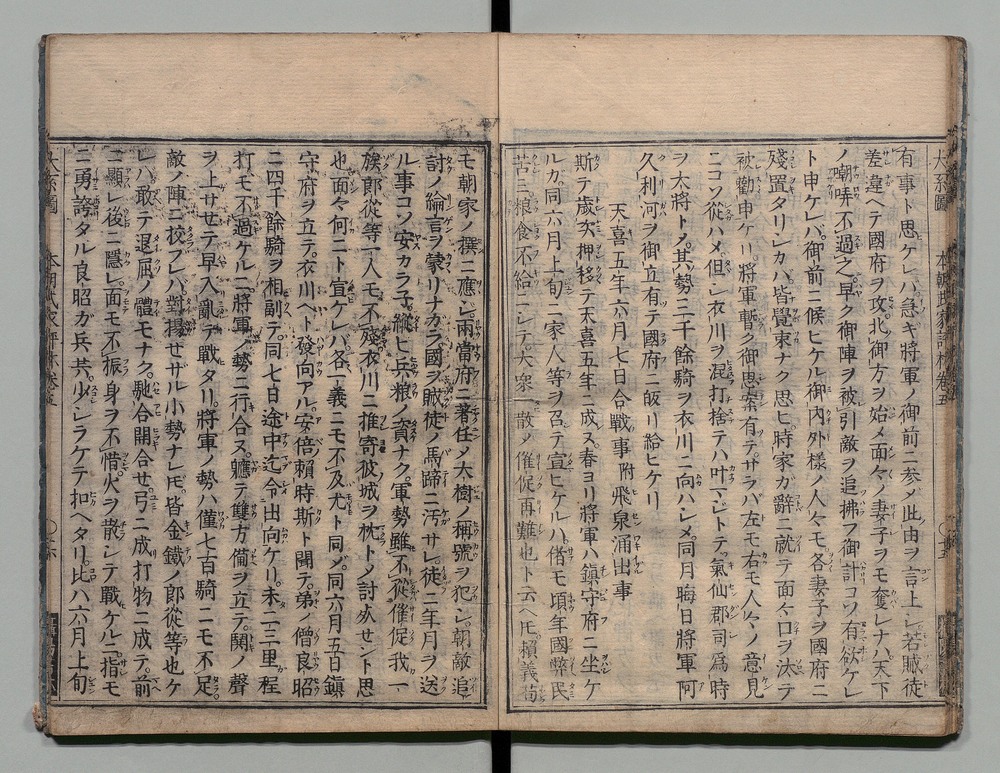 有事ト思ケレハ急ギ將軍ノ御前ニ參メ此由ヲ言上シ若賊徒
差違ヘテ國府ヲ攻北御方ヲ始メ面々ノ妻子ヲモ奪レナハ天下
ノ嘲哢不過之早ク御陣ヲ被引敵ヲ追拂フ御計コソ有欲ケレ
ト申ケレハ御前ニ候ヒケル御内外樣ノ人々モ各妻子ヲ國府ニ
殘置タリシカハ皆覺束ナク思ヒ時家カ辭ニ就テ面々口ヲ汰テ
被勸申ケリ將軍暫ク御思案有テサラハ左モ右モ人々ノ意見
ニコソ從ハメ但シ衣川ヲ混打捨テハ叶マシトテ氣仙郡司爲時
ヲ大將トメ其勢三千餘騎ヲ衣川ニ向ハシメ同月晦日將軍阿
久利河ヲ御立有テ國府ニ皈リ給ヒケリ
天喜五年六月七日合戰事附飛泉涌出事
斯テ歲次押移テ天喜五年ニ成ヌ春ヨリ將軍ハ鎭守府ニ坐ケ
ルカ同六月上旬ニ家人等ヲ召テ宣ヒケルハ偖モ頃年國弊民
苦シ粮食不給ニシテ大衆一散メ催促再難也ト云ヘ𪜈賴義苟
モ朝家ノ撰ニ應シ兩當府ニ著任メ大樹ノ稱號ヲ犯シ朝敵追
討ノ綸言ヲ蒙リナカラ國ヲ賊徒ノ馬蹄ニ汚サレ徒ニ年月ヲ送
ル事コソ安カラ子縱ヒ兵粮ノ資ナク軍勢雖不從催促我一
族郎從等一人モ不殘衣川ニ推寄彼城ヲ枕トメ討死せント思
也面々何ニト宣ケレハ各一義ニモ不及尤ト同メ同六月五日鎭
守府ヲ立テ衣川ヘト發向アル安倍賴時斯ト聞テ弟ノ僧良昭
ニ四千餘騎ヲ相副テ同七日途中迄令出向ケリ未二三里程
打モ不過ケルニ將軍ノ勢ニ行合ス軈テ雙方備ヲ立テ鬨ノ聲
ヲ上サせテ早入亂テ戰タリ將軍ノ勢ハ僅七百騎ニモ不足
敵ノ陣ニ挍フレハ對揚せサル小勢ナレ𪜈皆金鐵ノ郎從等也ケ
レハ敢テ退屈ノ體モナク馳合開合せ弓ニ成打物ニ成テ前
ニ顯レ後ニ隱レ面モ不振身ヲ不惜火ヲ散シテ戰ケルニ指モ
ニ勇誇タル良昭ガ兵共少シシラケテ扣ヘタリ比ハ六月上旬